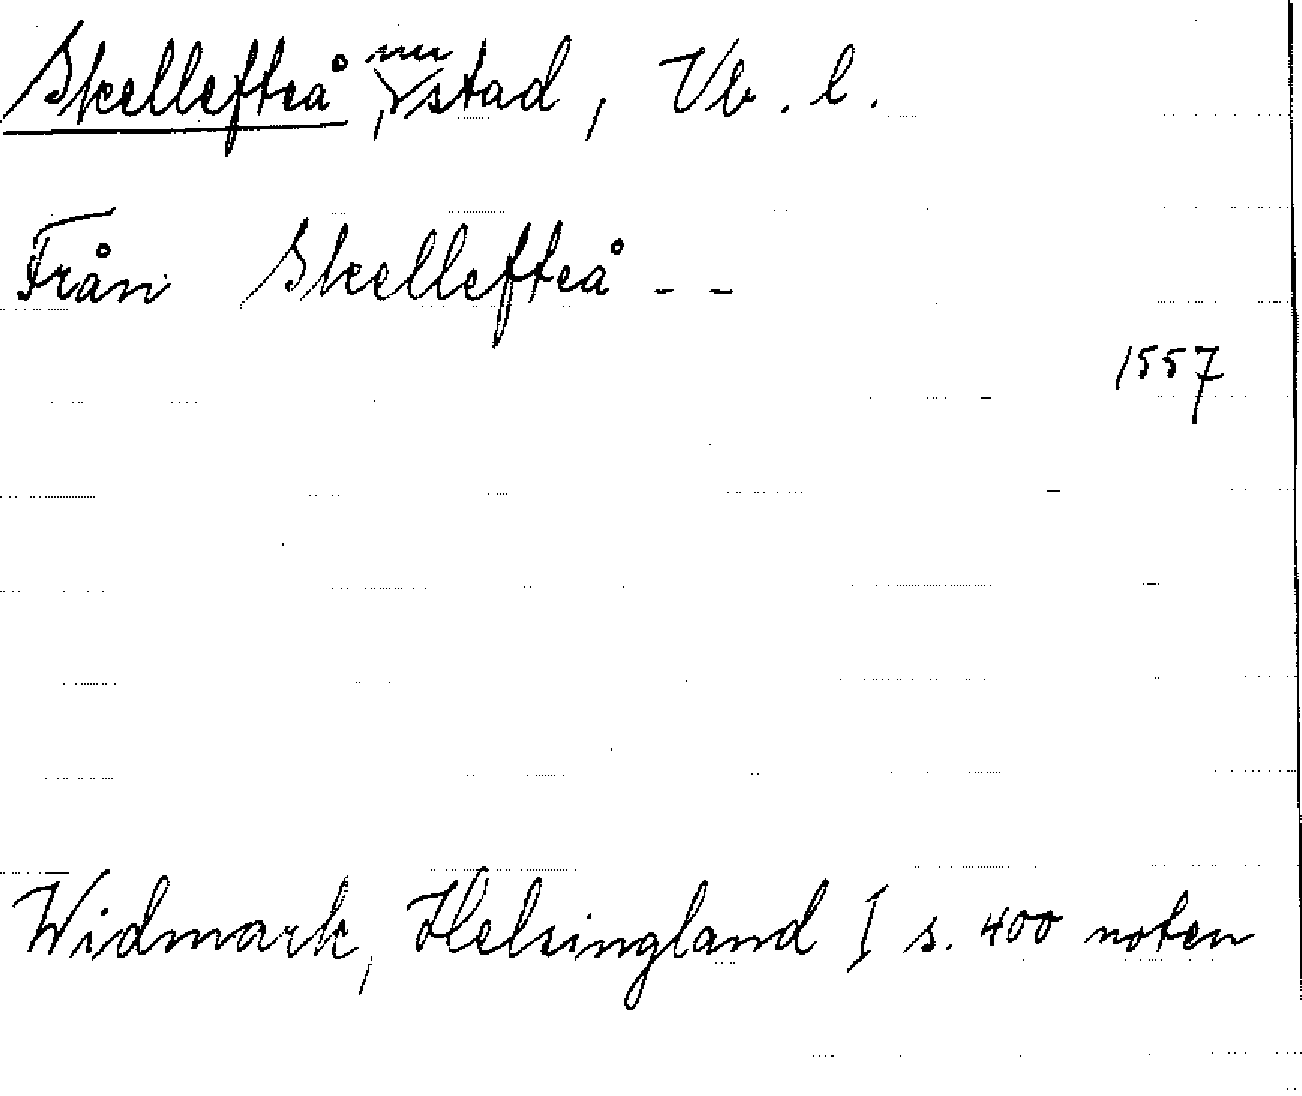 Skellefteå, nu stad, Vb. l.
Från Skellefteå - -
1557
Widmark, Helsingland I s. 400 noten